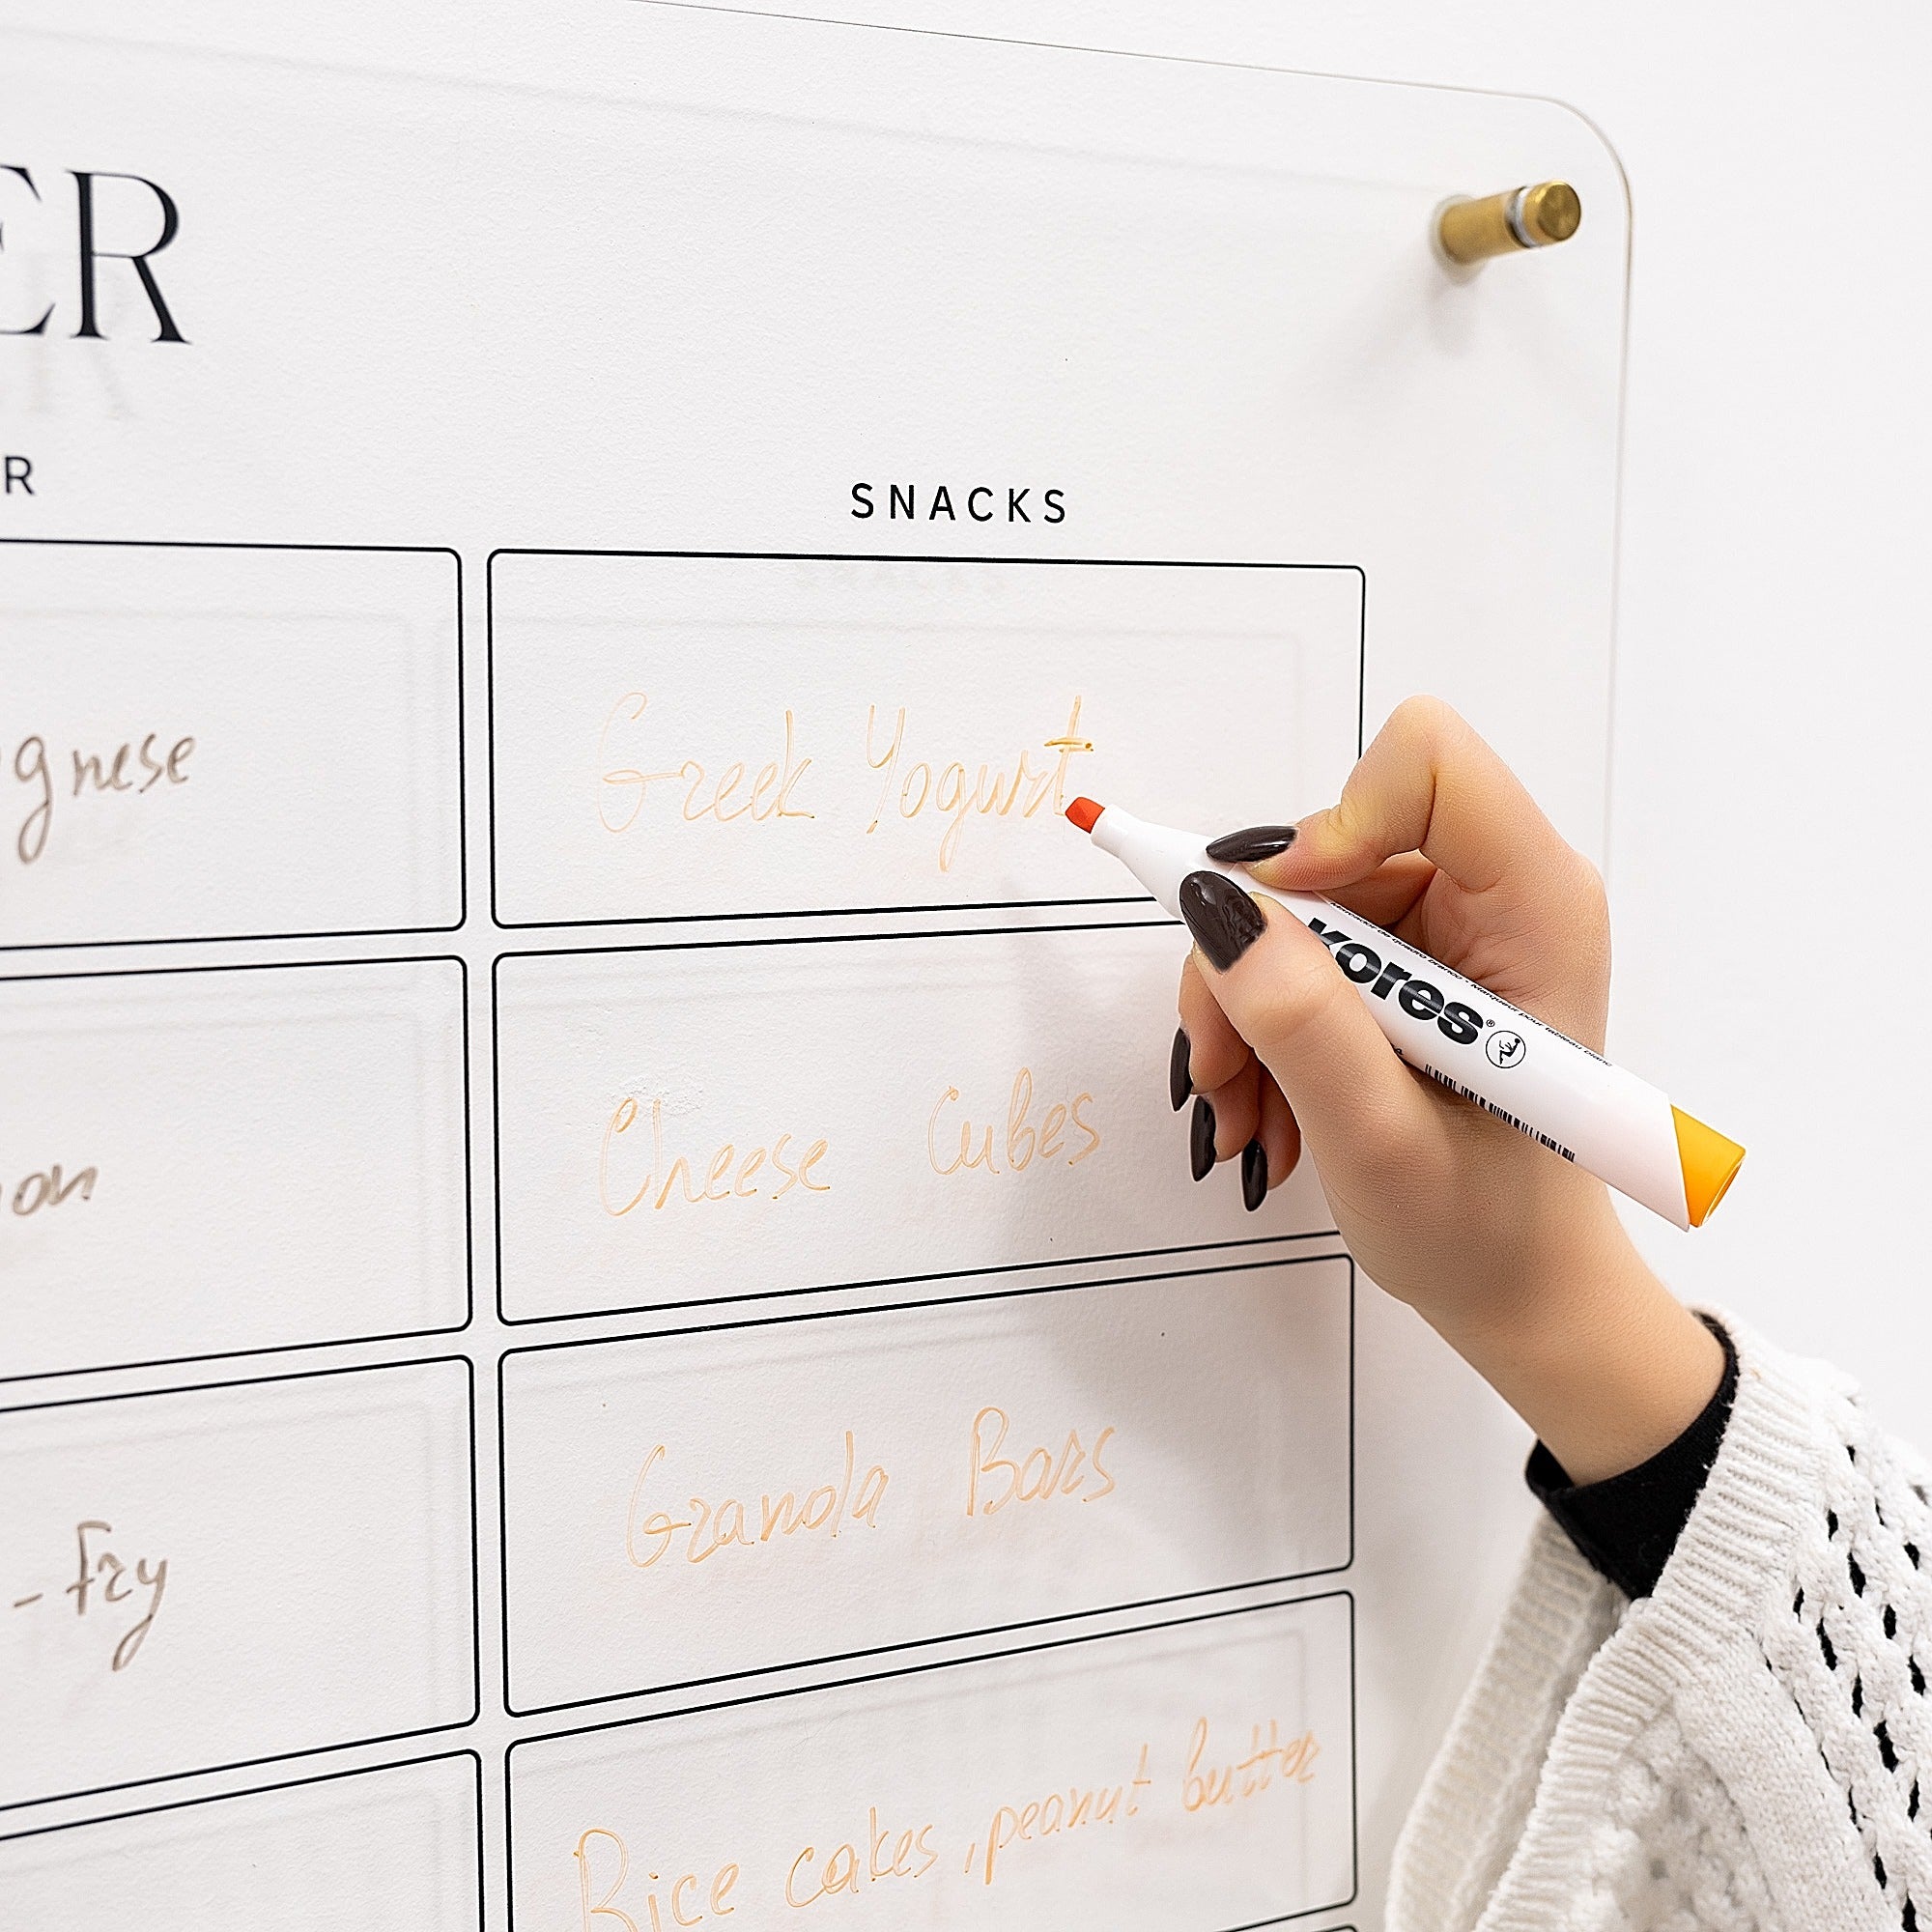 ER
R
SNACKS
gnese
Greek Yogurt
kores®
on
Cheese Cubes
-Fry
Granola Bars
Rice cakes, peanut butter